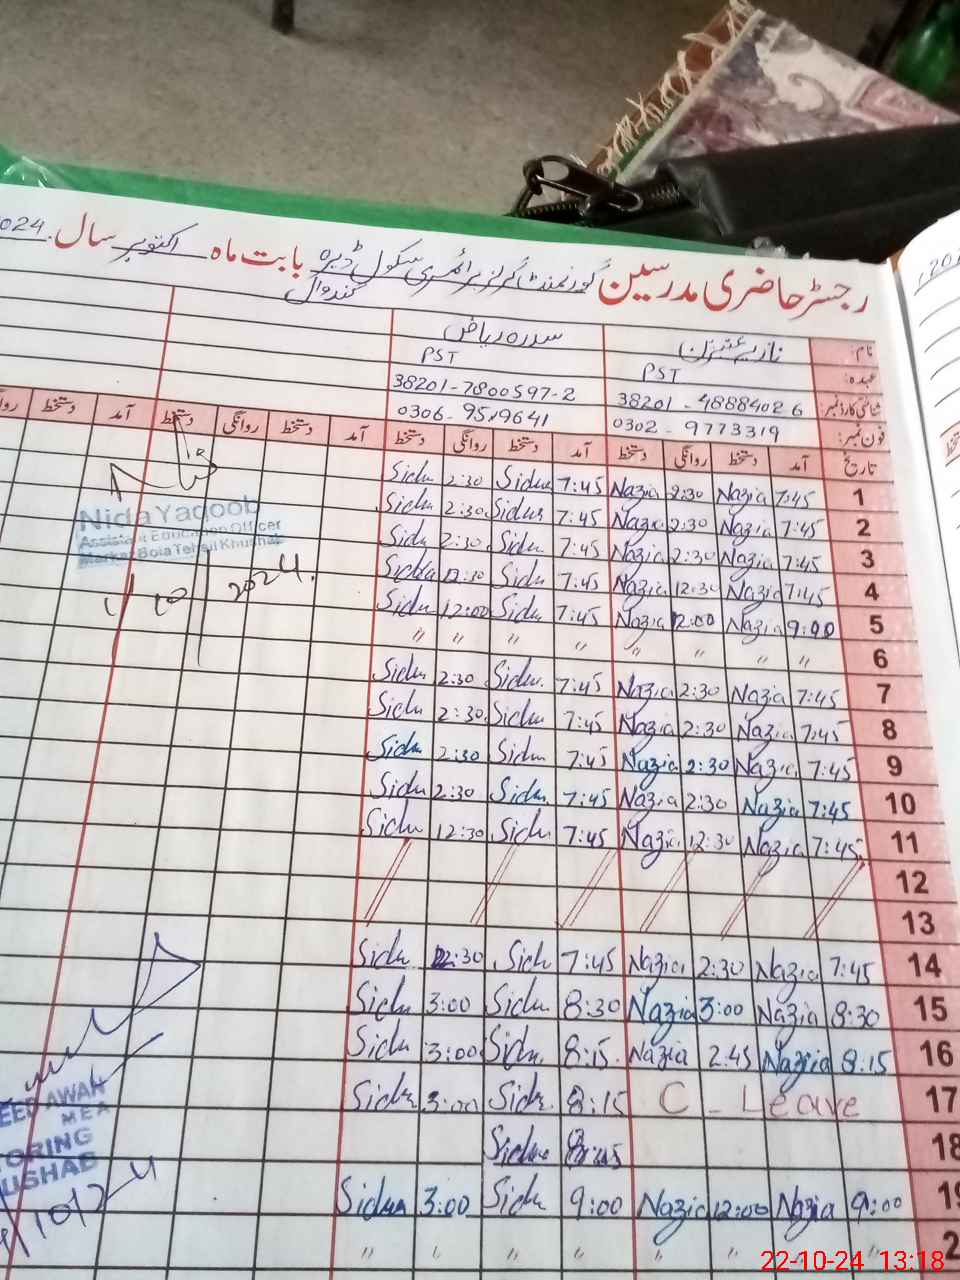 رجسٹر حاضری مدرسین گورنمنٹ گرلز پرائمری سکول ڈیرہ بابت ماہ اکتوبر سال 2024
کندوال
نام: نازیہ سدرہ ریاض
عہدہ: PST PST
شناختی کارڈ نمبر: 38201-4888402 6 38201-7800597-2
فون نمبر: 0302-9773319 0306-9519641
تاریخ آمد دستخط روانگی دستخط آمد دستخط روانگی دستخط آمد دستخط روانگی دستخط آمد دستخط
1 7:45 Nazia 2:30 Nazia 7:45 Sidra 2:30 Sidra
2 7:45 Nazia 2:30 Nazia 7:45 Sidra 2:30 Sidra
3 7:45 Nazia 2:30 Nazia 7:45 Sidra 2:30 Sidra
4 7:45 Nazia 12:30 Nazia 7:45 Sidra 12:30 Sidra
5 9:00 Nazia 12:00 Nazia 7:45 Sidra 12:00 Sidra
6 〃 〃 〃 〃 〃 〃 〃 〃
7 7:45 Nazia 2:30 Nazia 7:45 Sidra 2:30 Sidra
8 7:45 Nazia 2:30 Nazia 7:45 Sidra 2:30 Sidra
9 7:45 Nazia 2:30 Nazia 7:45 Sidra 2:30 Sidra
10 7:45 Nazia 2:30 Nazia 7:45 Sidra 2:30 Sidra
11 7:45 Nazia 12:30 Nazia 7:45 Sidra 12:30 Sidra
12
13
14 7:45 Nazia 2:30 Nazia 7:45 Sidra 2:30 Sidra
15 8:30 Nazia 3:00 Nazia 8:30 Sidra 3:00 Sidra
16 8:15 Nazia 2:45 Nazia 8:15 Sidra 3:00 Sidra
17 C-Leave 8:15 Sidra 3:00 Sidra
18 Sidra
19 9:00 Nazia 12:00 Nazia 9:00 Sidra 3:00 Sidra
2 〃 〃 〃 〃 〃 〃 〃
Nida Yaqoob
Assistant Education Officer
Markaz Bola Tehsil Khushab
10/2024
AWAN
MEA
TORING
USHAB
22-10-24 13:18